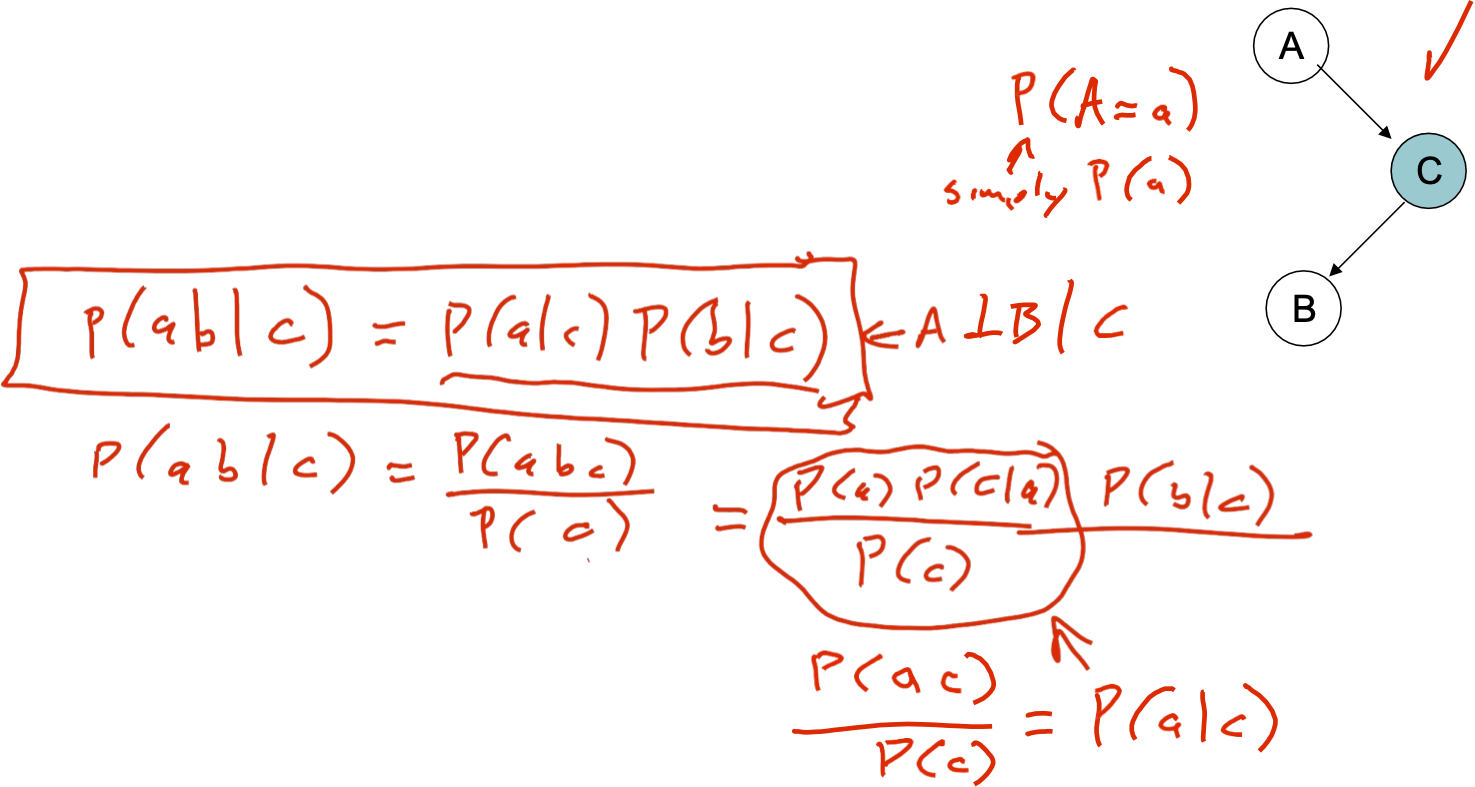 A
P(A=a)
C
simply P(a)
B
P(ab|c) = P(a|c) P(b|c) ← A ⊥ B | C
P(ab|c) = P(abc) / P(c) = P(a) P(c|a) P(b|c) / P(c)
P(ac) / P(c) = P(a|c)